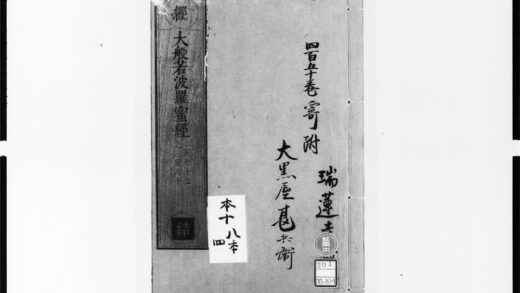 四百五十巻寄附
瑞蓮
大黒屋甚兵衛
經
大般若波羅蜜經
結
本十八本
四